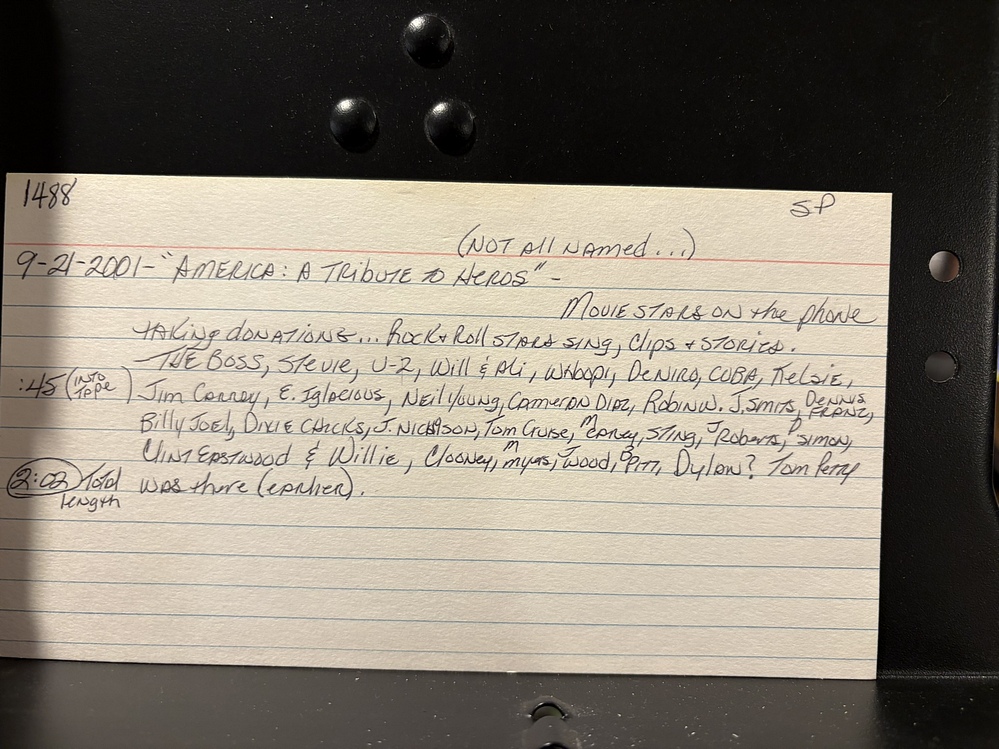 1488
SP
(NOT All NAMED...)
9-21-2001-"AMERICA: A TRIBUTE TO HEROS" -
MOVIE STARS ON the phone
TAKING DONATIONS... ROCK & Roll STARS SING, Clips & STORIES.
THE BOSS, STEVIE, U-2, Will & Ali, Whoopi, DENIRO, CUBA, Kelsie,
:45 (INTO TAPE) Jim Carrey, E. Iglacious, NEIL YOUNG, CAMERON DIAZ, ROBIN W. J. SMITS, DENNIS FRANZ,
Billy JOEL, DIXIE CHICKS, J. NICHOLSON, Tom Cruise, M CAREY, STING, J Roberts, P SIMON,
CLINT EASTWOOD & Willie, Clooney, M myers, J Wood, B PITT, Dylan? Tom Petty
2:02 Total length WAS there (earlier).